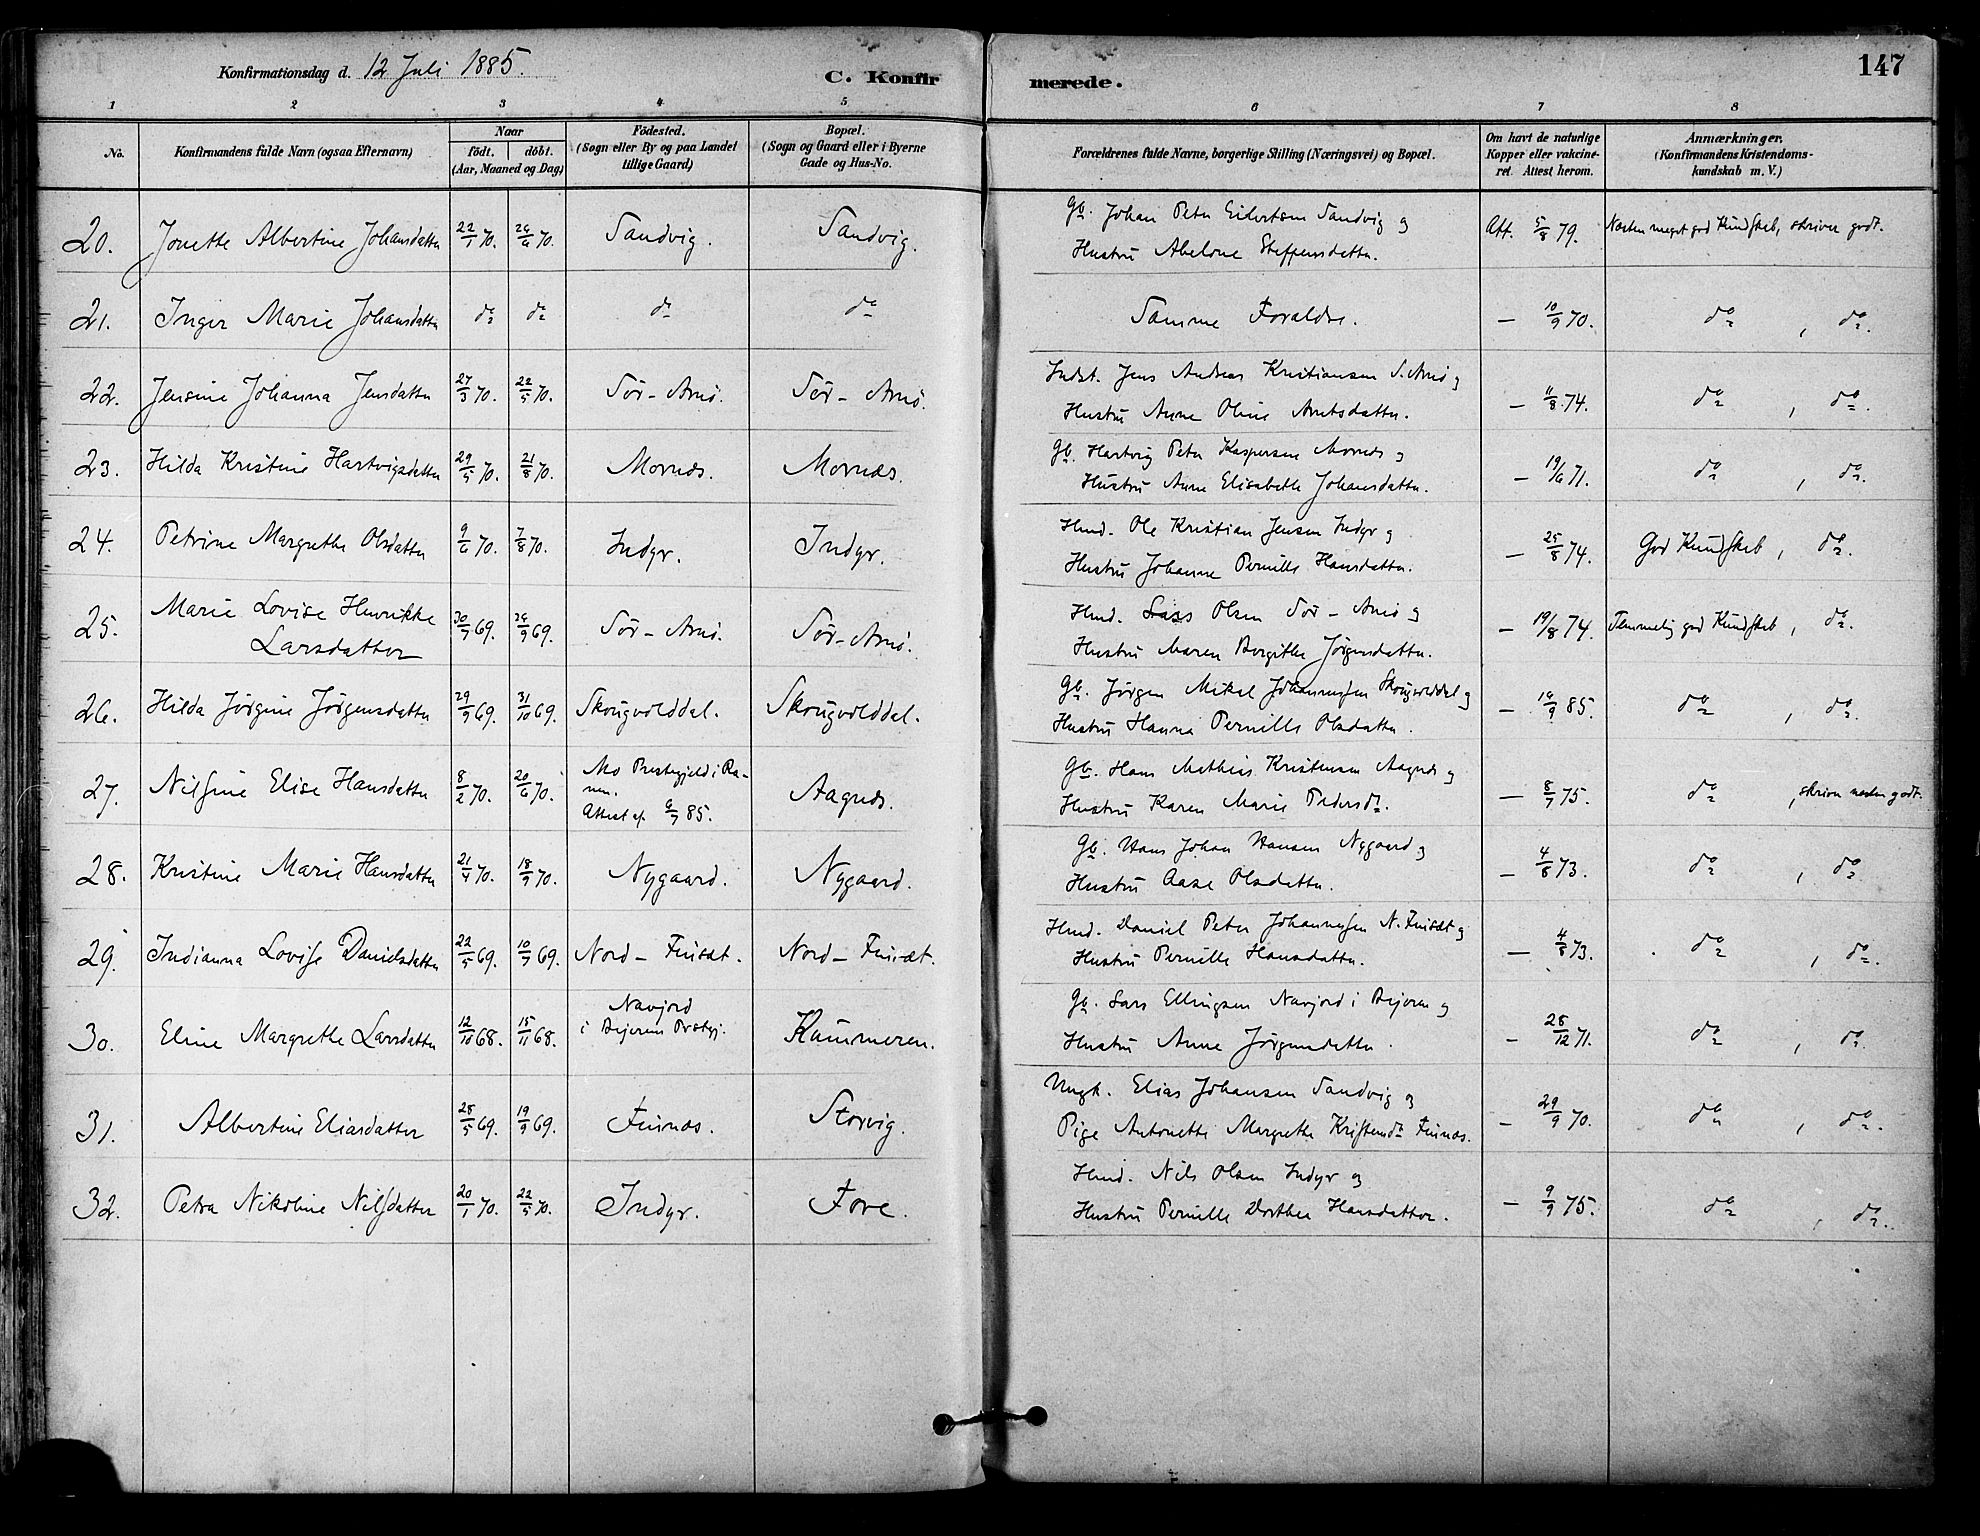 Konfirmationsdag d. 12 Juli 1885.
C. Konfirmerede.
147
1 2 3 4 5 6 7 8
No.
Konfirmandens fulde Navn (ogsaa Efternavn)
Naar
födt. döbt.
(Aar, Maaned og Dag)
Födested.
(Sogn eller By og paa Landet
tillige Gaard)
Bopæl.
(Sogn og Gaard eller i Byerne
Gade og Hus-No.
Forældrenes fulde Navne, borgerlige Stilling (Næringsvei) og Bopæl.
Om havt de naturlige
Kopper eller vakcine-
ret. Attest herom.
Anmærkninger.
(Konfirmandens Kristendoms-
kundskab m. V.)
20. Jonette Albertine Johansdatter 22/1 70. 26/6 70. Sandvig. Sandvig. Gb. Johan Peter Eilertsen Sandvig og
Hustru Abelone Steffensdatter. Att. 5/8 79. Næsten meget god Kundskab, skriver godt.
21. Inger Marie Johansdatter do do do do Samme Forældre. – 10/9 70. do, do.
22. Jensine Johanna Jensdatter 27/3 70. 22/5 70. Sör-Arnö. Sör-Arnö. Indst. Jens Andreas Kristiansen S. Arnö og
Hustru Anne Oline Arntsdatter. – 11/8 74. do, do.
23. Hilda Kristine Hartvigsdatter 29/5 70. 21/8 70. Mornæs. Mornæs. Gb. Hartvig Peter Kaspersen Mornæs og
Hustru Anne Elisabeth Johansdatter. – 19/6 71. do, do.
24. Petrine Margrethe Olsdatter 9/6 70. 7/8 70. Indyr. Indyr. Hmd. Ole Kristian Jensen Indyr og
Hustru Johanne Pernille Hansdatter. – 25/8 74. God Kundskab, do.
25. Marie Lovise Henrikke
Larsdatter 30/7 69. 26/9 69. Sör-Arnö. Sör-Arnö. Hmd. Lars Olsen Sör-Arnö og
Hustru Maren Bergithe Jörgensdatter. – 19/8 74. Temmelig god Kundskab, do.
26. Hilda Jörgine Jörgensdatter 29/9 69. 31/10 69. Skougvolddal. Skougvolddal. Gb. Jörgen Mikal Johannesen Skougvolddal og
Hustru Hanna Pernille Olsdatter. – 16/9 85. do, do.
27. Nilsine Elise Hansdatter 8/2 70. 20/6 70. Mo Prestegjeld i Ra-
nen.
Attest af 6/7 85. Aagnæs. Gb. Hans Mathias Kristensen Aagnæs og
Hustru Karen Marie Pedersdr. – 8/7 75. do, skriver næsten godt.
28. Kristine Marie Hansdatter 21/4 70. 18/9 70. Nygaard. Nygaard. Gb. Hans Johan Hansen Nygaard og
Hustru Aase Olsdatter. – 4/8 73. do, do.
29. Indianna Lovise Danielsdatter 22/5 69. 10/7 69. Nord-Finsæt. Nord-Finsæt. Hmd. Daniel Peter Johannesen N. Finsæt og
Hustru Pernille Hansdatter. – 4/8 73. do, do.
30. Eline Margrethe Larsdatter 12/10 68. 15/11 68. Navjord
i Bejeren Prstgj. Kammeren. Gb. Lars Ellingsen Navjord i Bejeren og
Hustru Anne Jörgensdatter. – 28/12 71. do, do.
31. Albertine Eliasdatter 28/5 69. 19/9 69. Finnæs. Storvig. Ungk. Elias Johansen Sandvig og
Pige Antonette Margrethe Kristensdr Finnæs. – 29/9 70. do, do.
32. Petra Nikoline Nilsdatter 20/1 70. 22/5 70. Indyr. Fore. Hmd. Nils Olsen Indyr og
Hustru Pernille Dorthea Hansdatter. – 9/9 75. do, do.